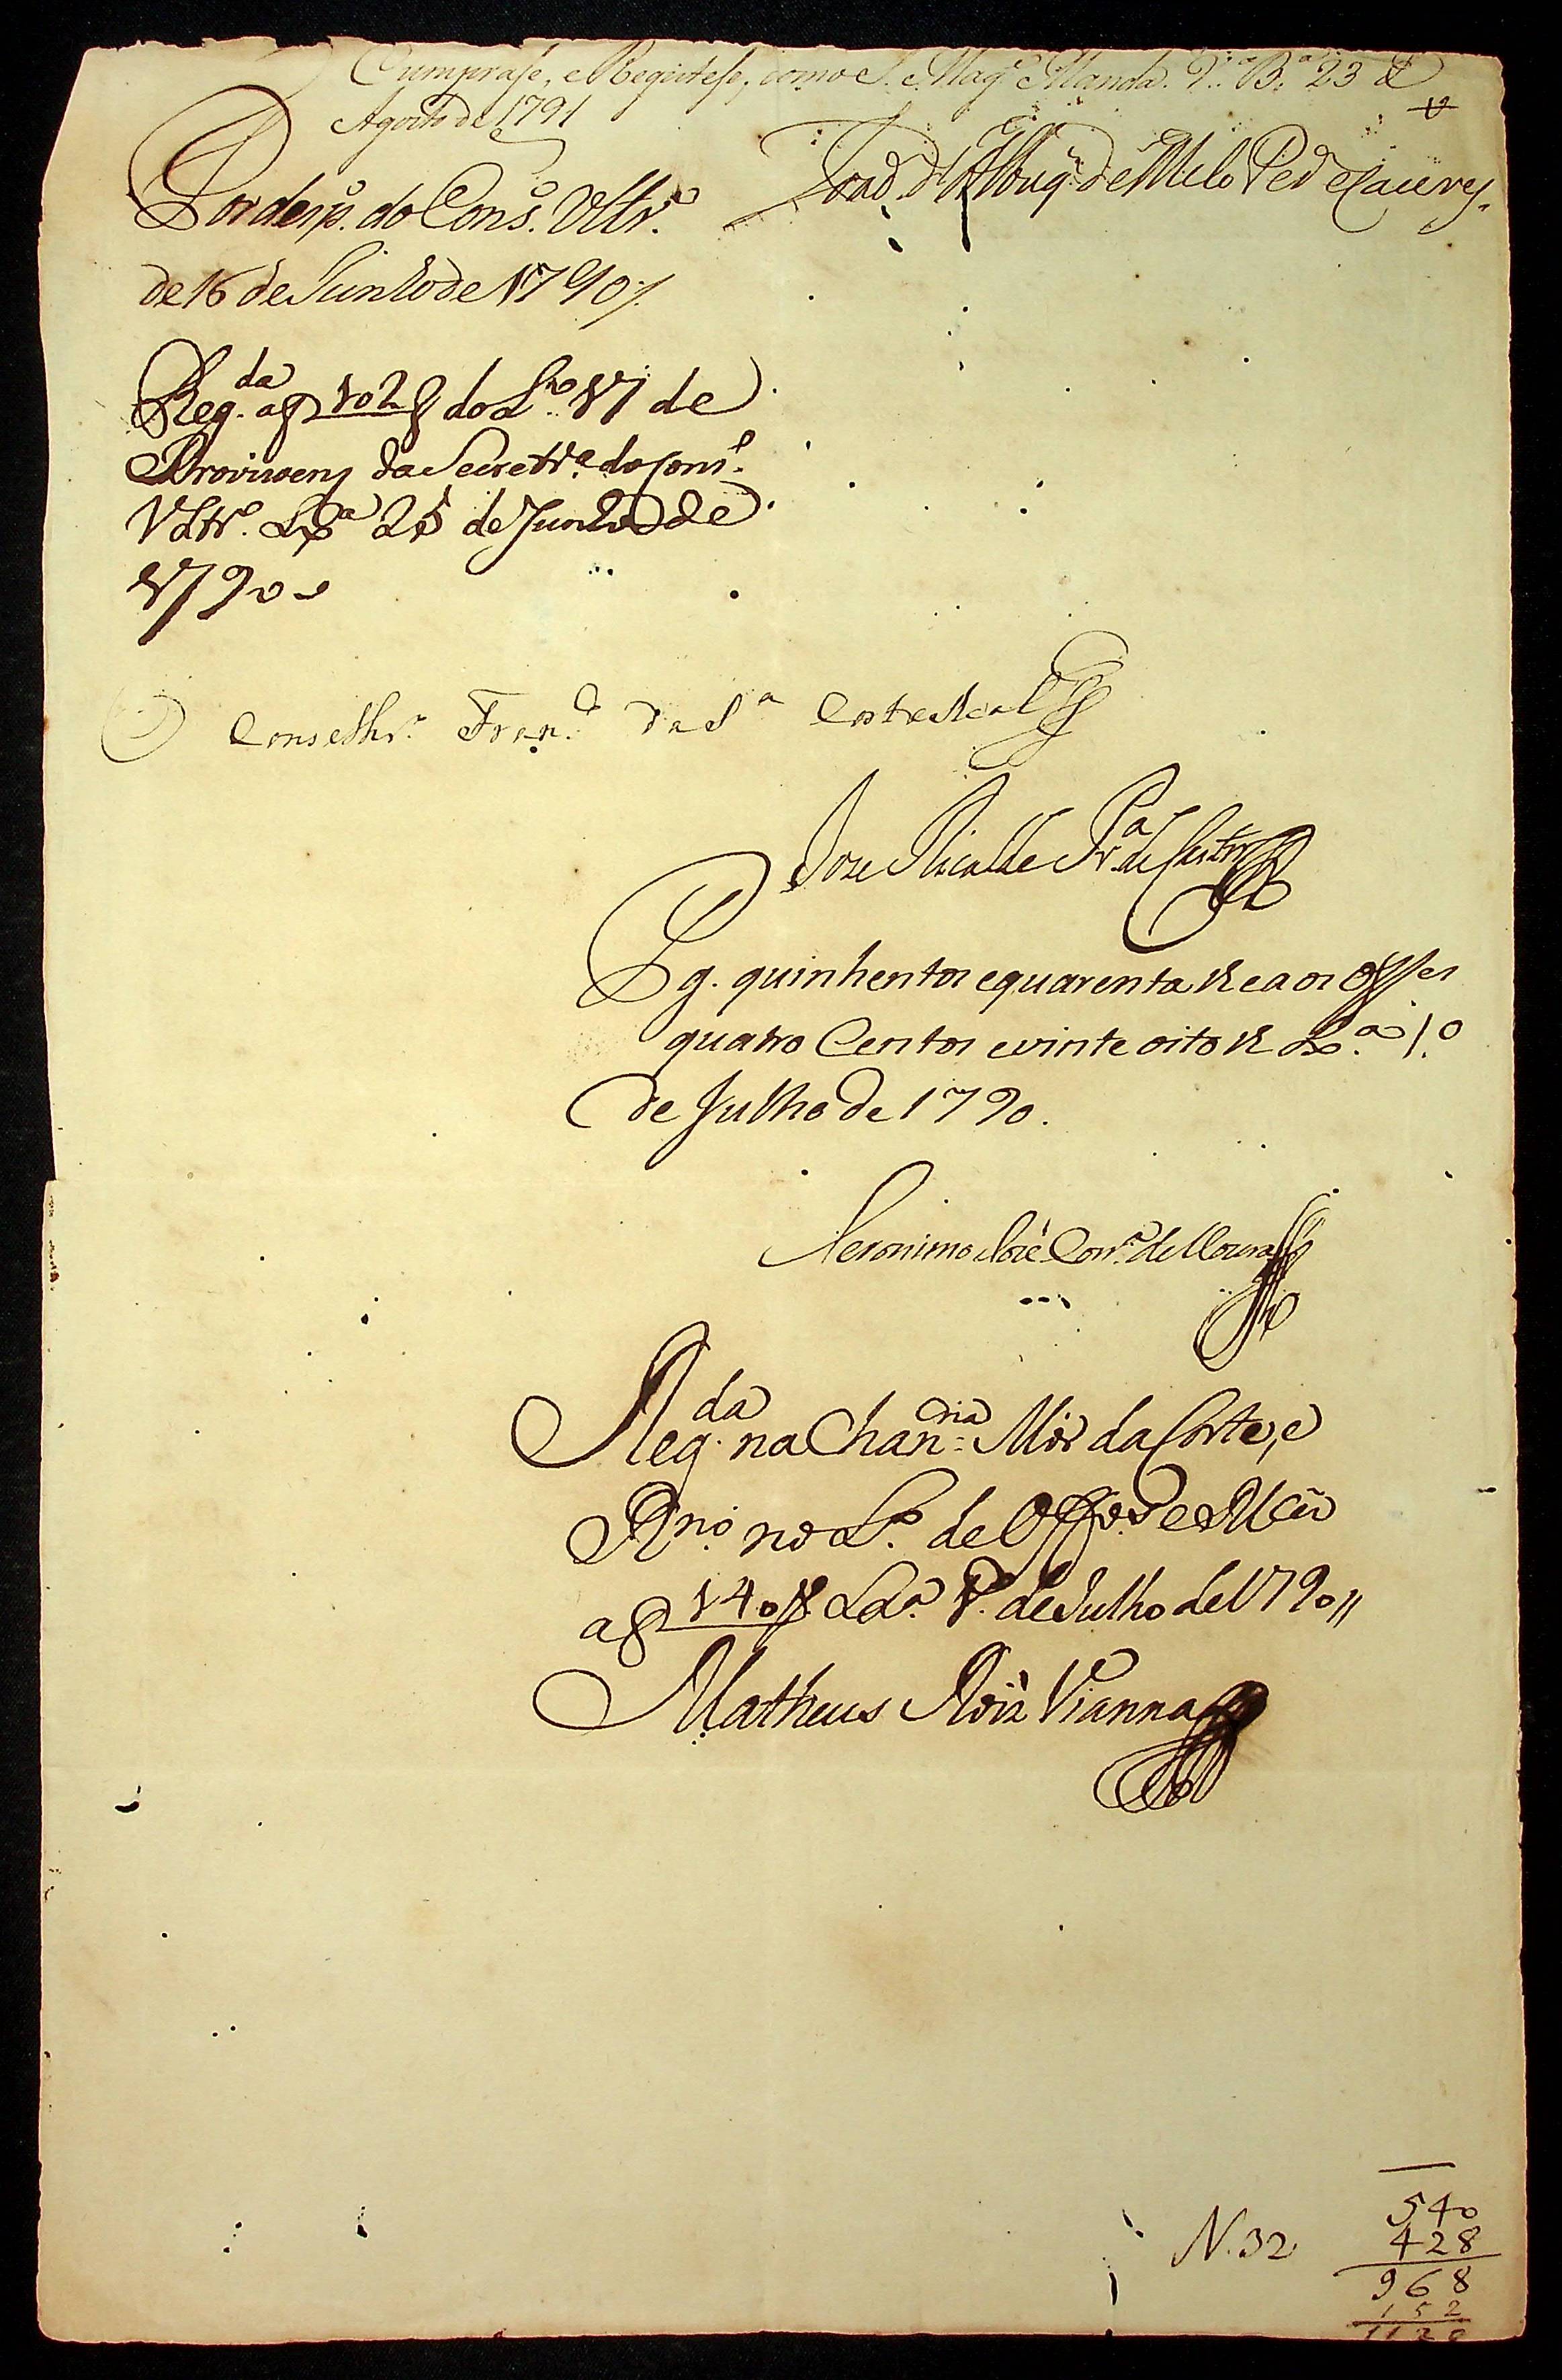 Cumprase, e Registese, como S. Mag.e Manda. V.a B.a 23 de
Agosto de 1791
João d'Albuq. de Melo Per.a Caceres
Por desp.o do Cons.o Ultr.o
de 16 de Junho de 1790
Reg.da a f 102 do L.o 17 de
Provizoens da Secretr.a do Cons.o
Ultr.o Lx.a 25 de Junho de
1790
O Conselhr.o Fran.co da S.a Corte Real
Joze Ricalde Pr.a de Castro
Pg. quinhentos e quarenta reaos Offes
quatro Centos e vinte oito r Lx.a 1.o
de Julho de 1790.
Jeronimo José Corr.a de Moura
Reg.da na Chan.ria Mór da Corte, e
Rno. no L.o de Off.os e M.ces
a f 140 Lx.a 1.o de Julho de 1790
Matheus Roiz Vianna
N. 32
540
428
968
152
1120